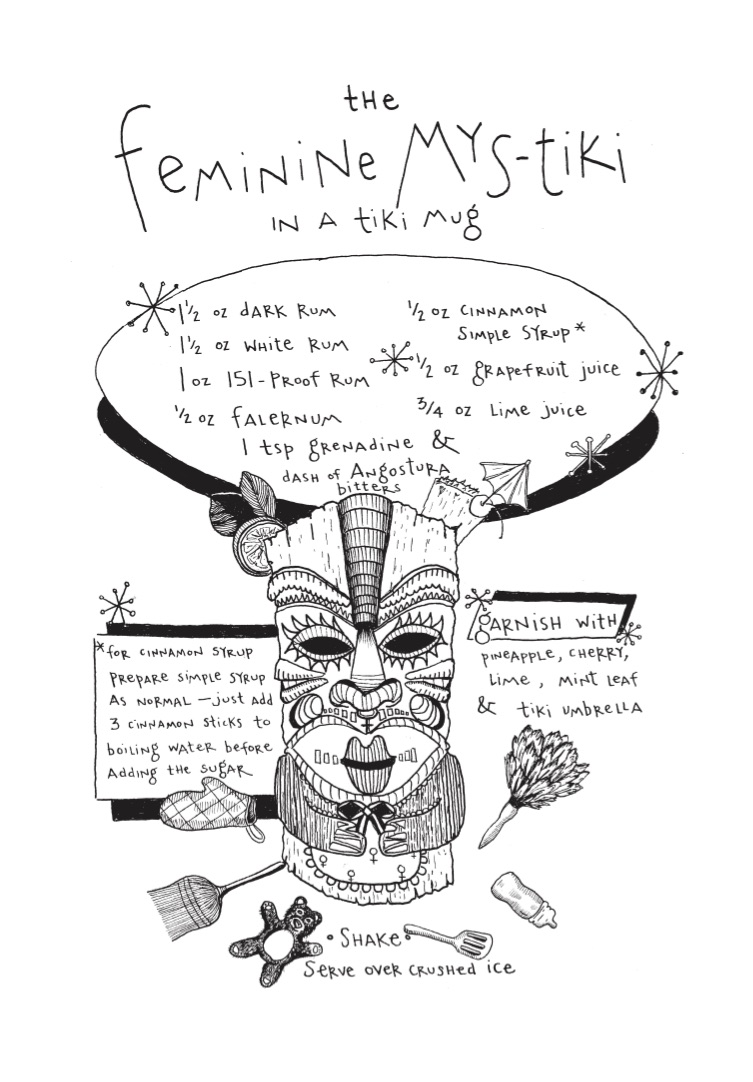 the
feminine Mys-tiki
in a tiki mug
1 1/2 oz dark rum
1 1/2 oz white rum
1 oz 151-proof rum
1/2 oz falernum
1/2 oz cinnamon
simple syrup*
1/2 oz grapefruit juice
3/4 oz lime juice
1 tsp grenadine &
dash of Angostura
bitters
*for cinnamon syrup
prepare simple syrup
as normal – just add
3 cinnamon sticks to
boiling water before
adding the sugar
garnish with
pineapple, cherry,
lime, mint leaf
& tiki umbrella
• Shake •
Serve over crushed ice